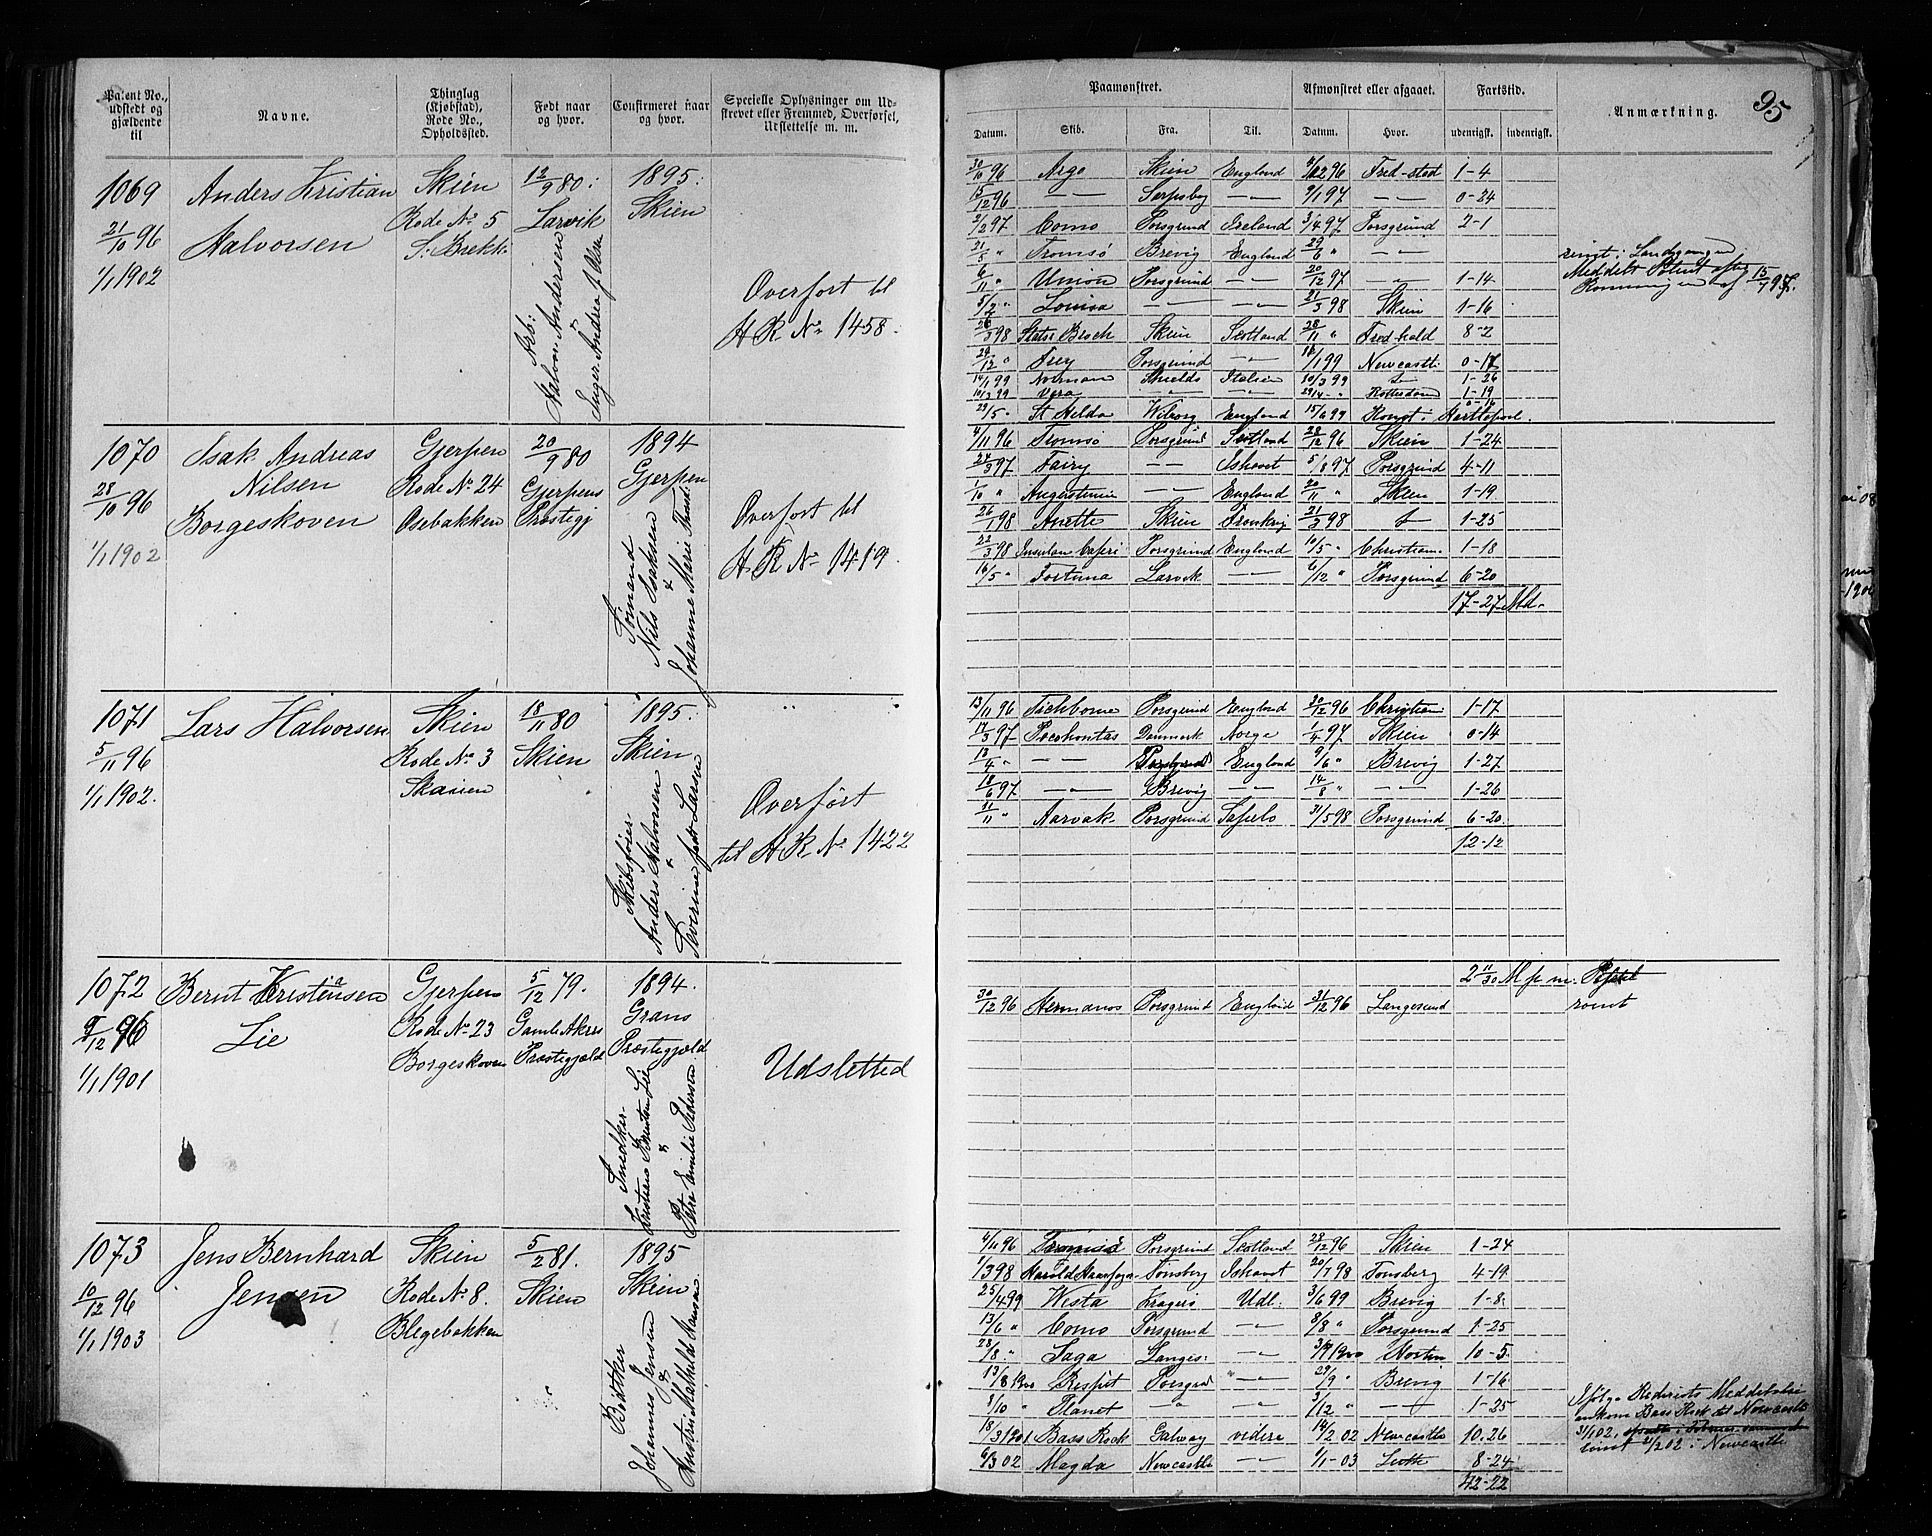 95
Patent No., udstedt og gjældende til
Navne.
Thinglag (Kjøbstad), Rode No., Opholdssted.
Født naar og hvor.
Confirmeret naar og hvor.
Specielle Oplysninger om Udstrevet eller Fremmed, Overførsel, Udslettelse m. m.
Paamønstret.
Afmønstret eller afgaaet.
Fartstid.
Anmærkning.
Datum. Skib. Fra. Til. Datum. Hvor. udenrigsk. indenrigsk.
1069 Anders Kristian Skien 12/9 80. 1895.
21/10 96 Halvorsen Rode No 5 Larvik Skien
1/1 1902 S. Brekke
Arb:
Halvor Andersen
&
Inger Andrea f. Olsen
Overført til
H R No 1458.
30/10 96 Argo Skien England 96 Fred-stad 1-4
15/12 96 —"— Sarpsbg —"— 9/1 97 —"— 0-24
2/2 97 Como Porsgrund Ireland 3/4 97 Porsgrund 2-1
21/5 " Tromsø Brevig England 29/6 " —"—
6/11 " Union Porsgrund —"— 20/12 97 —"— 1-14
5/2 " Lovisa —"— —"— 21/3 98 Skien 1-16
28/3 98 Stats: Broch Skien Scotland 28/11 " Fred-hald 8-2
29/12 " Frey Porsgrund —"— 16/1 99 Newcastle 0-17
14/1 99 Norman Shields Italien 10/3 99 1-26
10/3 99 Vera —"— —"— 29/4 " Rotterdam 1-19
29/5 " St Helda Wiborg England 15/6 99 Rømt i Hartlepool. 0-16
rømt i
Meddelt Patent efter
Rømningen af 15/7 97.
1070 Isak Andreas Gjerpen 20/9 80 1894
28/10 96 Nilsen Rode No 24 Gjerpens Gjerpen
1/1 1902 Borgeskoven Osebakken Præstegj
Sømand
Nils Isaksen
&
Johanne Marie
Overført til
H. R. No 1419.
4/11 96 Tromsø Porsgrund Scotland 28/12 96 Skien 1-24
24/3 97 Fairy —"— Ishavet 5/8 97 Porsgrund 4-11
1/10 " —"— England 20/11 " Skien 1-19
26/1 98 Anette Skien Frankrig 21/3 98 1-25
22/3 98 Insulan Capri Porsgrund England 10/5 " Christiania 1-18
16/5 " Fortuna Larvik —"— 6/12 " Porsgrund 6-20
17-27 Md.
1071 Lars Halvorsen Skien 18/11 80 1895.
5/11 96 Rode No 3 Skien Skien
1/1 1902. Skavien
Skibsfører
Anders Halvorsen
&
Severine født Larsen
Overført
til H R No 1422
13/11 96 Tichborne Porsgrund England 30/12 96 Christian: 1-17
17/3 97 Pocahontas Danmark Norge 1/4 97 Skien 0-14
12/4 " —"— Porsgrund England 9/6 " Brevig 1-27
18/6 97 —"— Brevig —"— 14/8 " —"— 1-26
11/11 " Aarvak Porsgrund 31/5 98 Porsgrund 6-20
12-12
1072 Bernt Kristensen Gjerpen 5/12 79. 1894.
9/12 96 Lie Rode No 23 Gamle Akers Grans
1/1 1901 Borgeskoven Præstegjæld Præstegjæld
Snedker
Kristians Lie
&
Petra Emilie Pedersen
Udslettet
2 11/30 M p m.
30/12 96 Hermanos Porsgrund England 31/12 96 Langesund rømt
1073 Jens Bernhard Skien 5/2 81. 1895
10/12 96 Jensen Rode No 8. Skien Skien
1/1 1903 Blegebakken
Bødker
Johannes Jensen
&
Hustru Mathilde Hansen
4/11 96 Porsgrund Scotland 28/12 96 Skien 1-24
1/3 98 Harald Haarfager Tønsberg Ishavet 20/7 98 Tønsberg 4-19
25/4 99 Westa Kragerø Udl. 3/6 99 Brevig 1-8
13/6 " Como Porsgrund —"— 8/8 " Porsgrund 1-25
28/8 " Saga Langes: —"— 1900 Horten 10-5
13/8 1900 Respit Porsgrd —"— 29/9 " Brevig 1-16
8/10 " Planet " —"— 3/12 " —"— 1-25
18/3 1901 Bass Rock Galway videre 14/2 02 Newcastle 10-26
6/3 02 Magda Newcastle —"— 1/1-03 Leith 8-24
42-22
Ifølge Rederiets Meddelelse
ankom Bass Rock til Newcastle
31/1 02,
rømt 2/2 02 i Newcastle